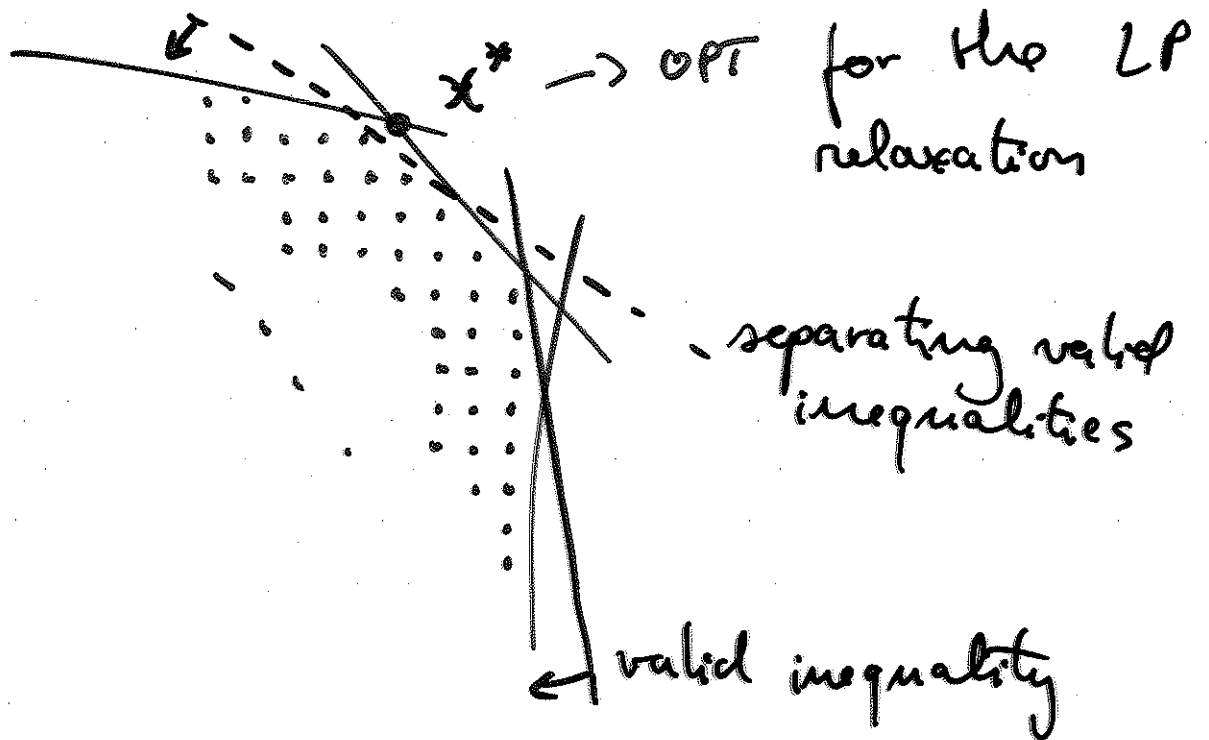 x* → OPT for the LP
relaxation
separating valid
inequalities
valid inequality